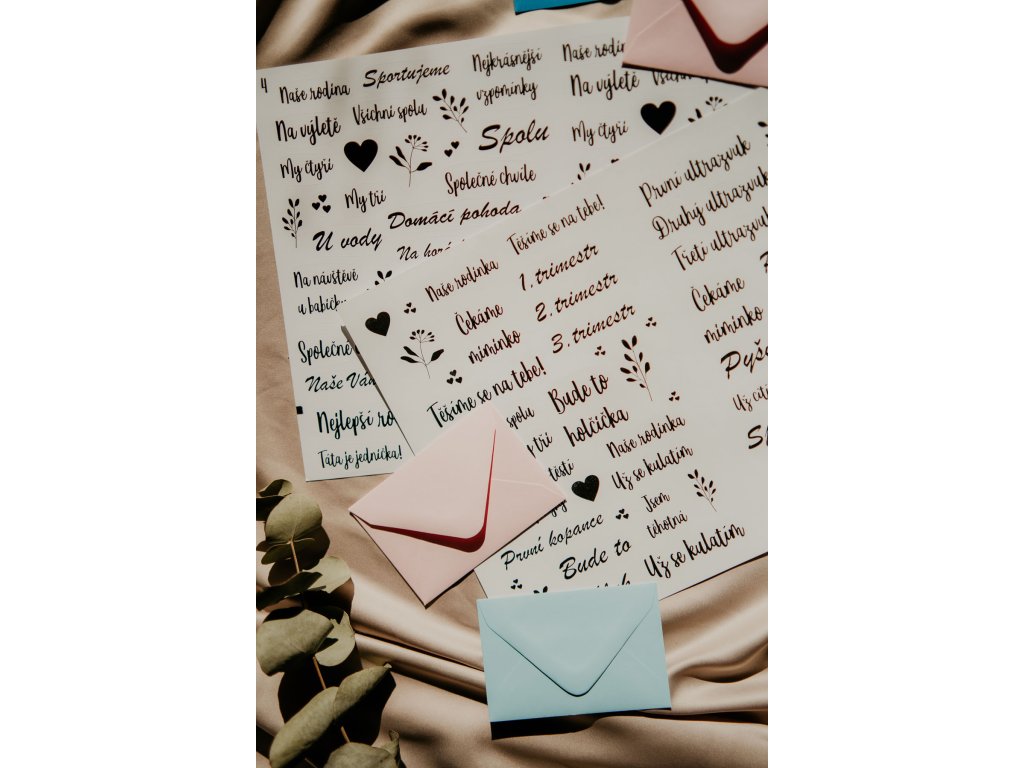 4
Naše rodina
Sportujeme
Nejkrásnější
vzpomínky
Naše
Na výletě
Všichni spolu
Na výletě
My čtyři
Spolu
My čtyři
My tři
Společné chvíle
U vody
Domácí pohoda
Na
Na návštěvě
u babičky
Společné
Naše
Nejlepší
Táta je jednička!
Těšíme se na tebe!
První ultrazvuk
Druhý ultrazvuk
Třetí ultrazvuk
Naše rodinka
1. trimestr
Čekáme
miminko
2. trimestr
3. trimestr
Čekáme
miminko
Těšíme se na tebe!
spolu
Bude to
holčička
tři
Naše rodinka
Už se kulatím
Už
Jsem
těhotná
První kopance
Bude to
Už se kulatím